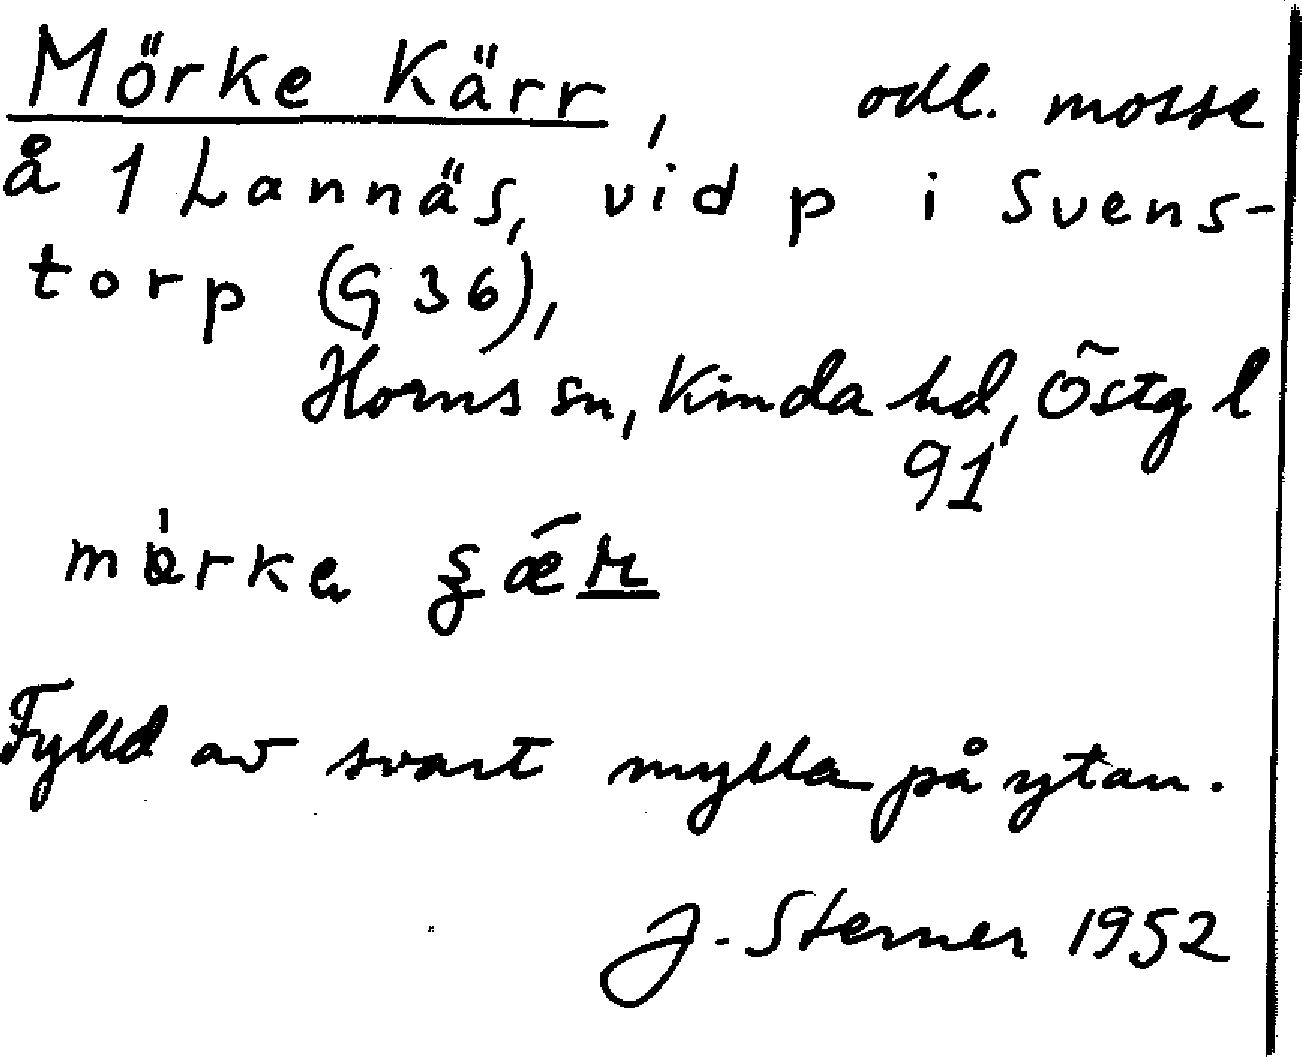 Mörke Kärr, odl. mosse
å 1 Lannäs, vid p i Svens-
torp (G 36),
Horns sn, Kinda hd, Östg l
91
Fylld av svart mylla på ytan.
J. Sterner 1952